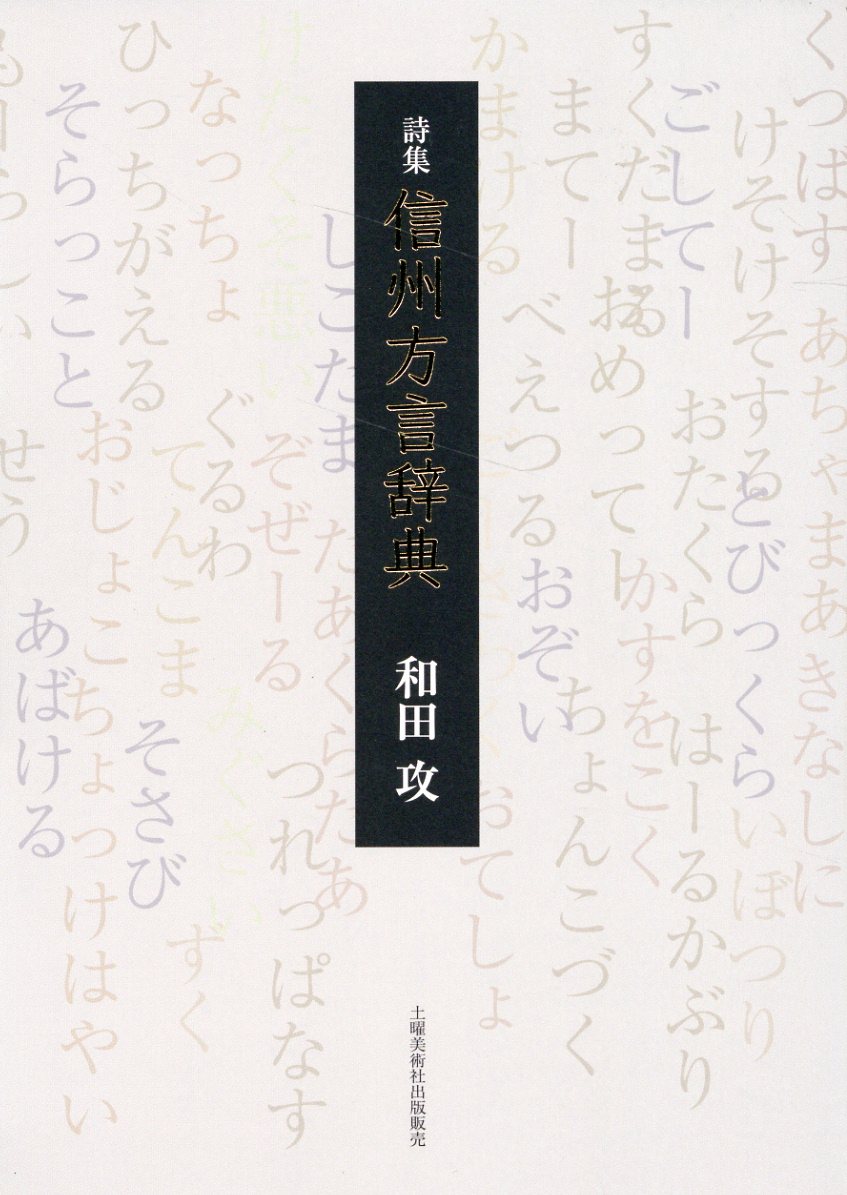 詩集 信州方言辞典 和田 攻
土曜美術社出版販売
くつばす
あちゃまあきなしに
けそけそする
とびっくら
いぼつり
ごしてー
おたくら
はーるかぶり
すくだまる
おめってー
かすをこく
まてー
べえつる
おぞい
ちょんこづく
かまける
おてしょ
しこたま
たあくらたあ
けたくそ悪い
ぞぜーる
つれっぱなす
なっちょ
ぐるわ
みぐさい
ひっちがえる
てんこま
ずく
そさび
そらっこと
おじょこ
ちょっけはやい
あばける
せう